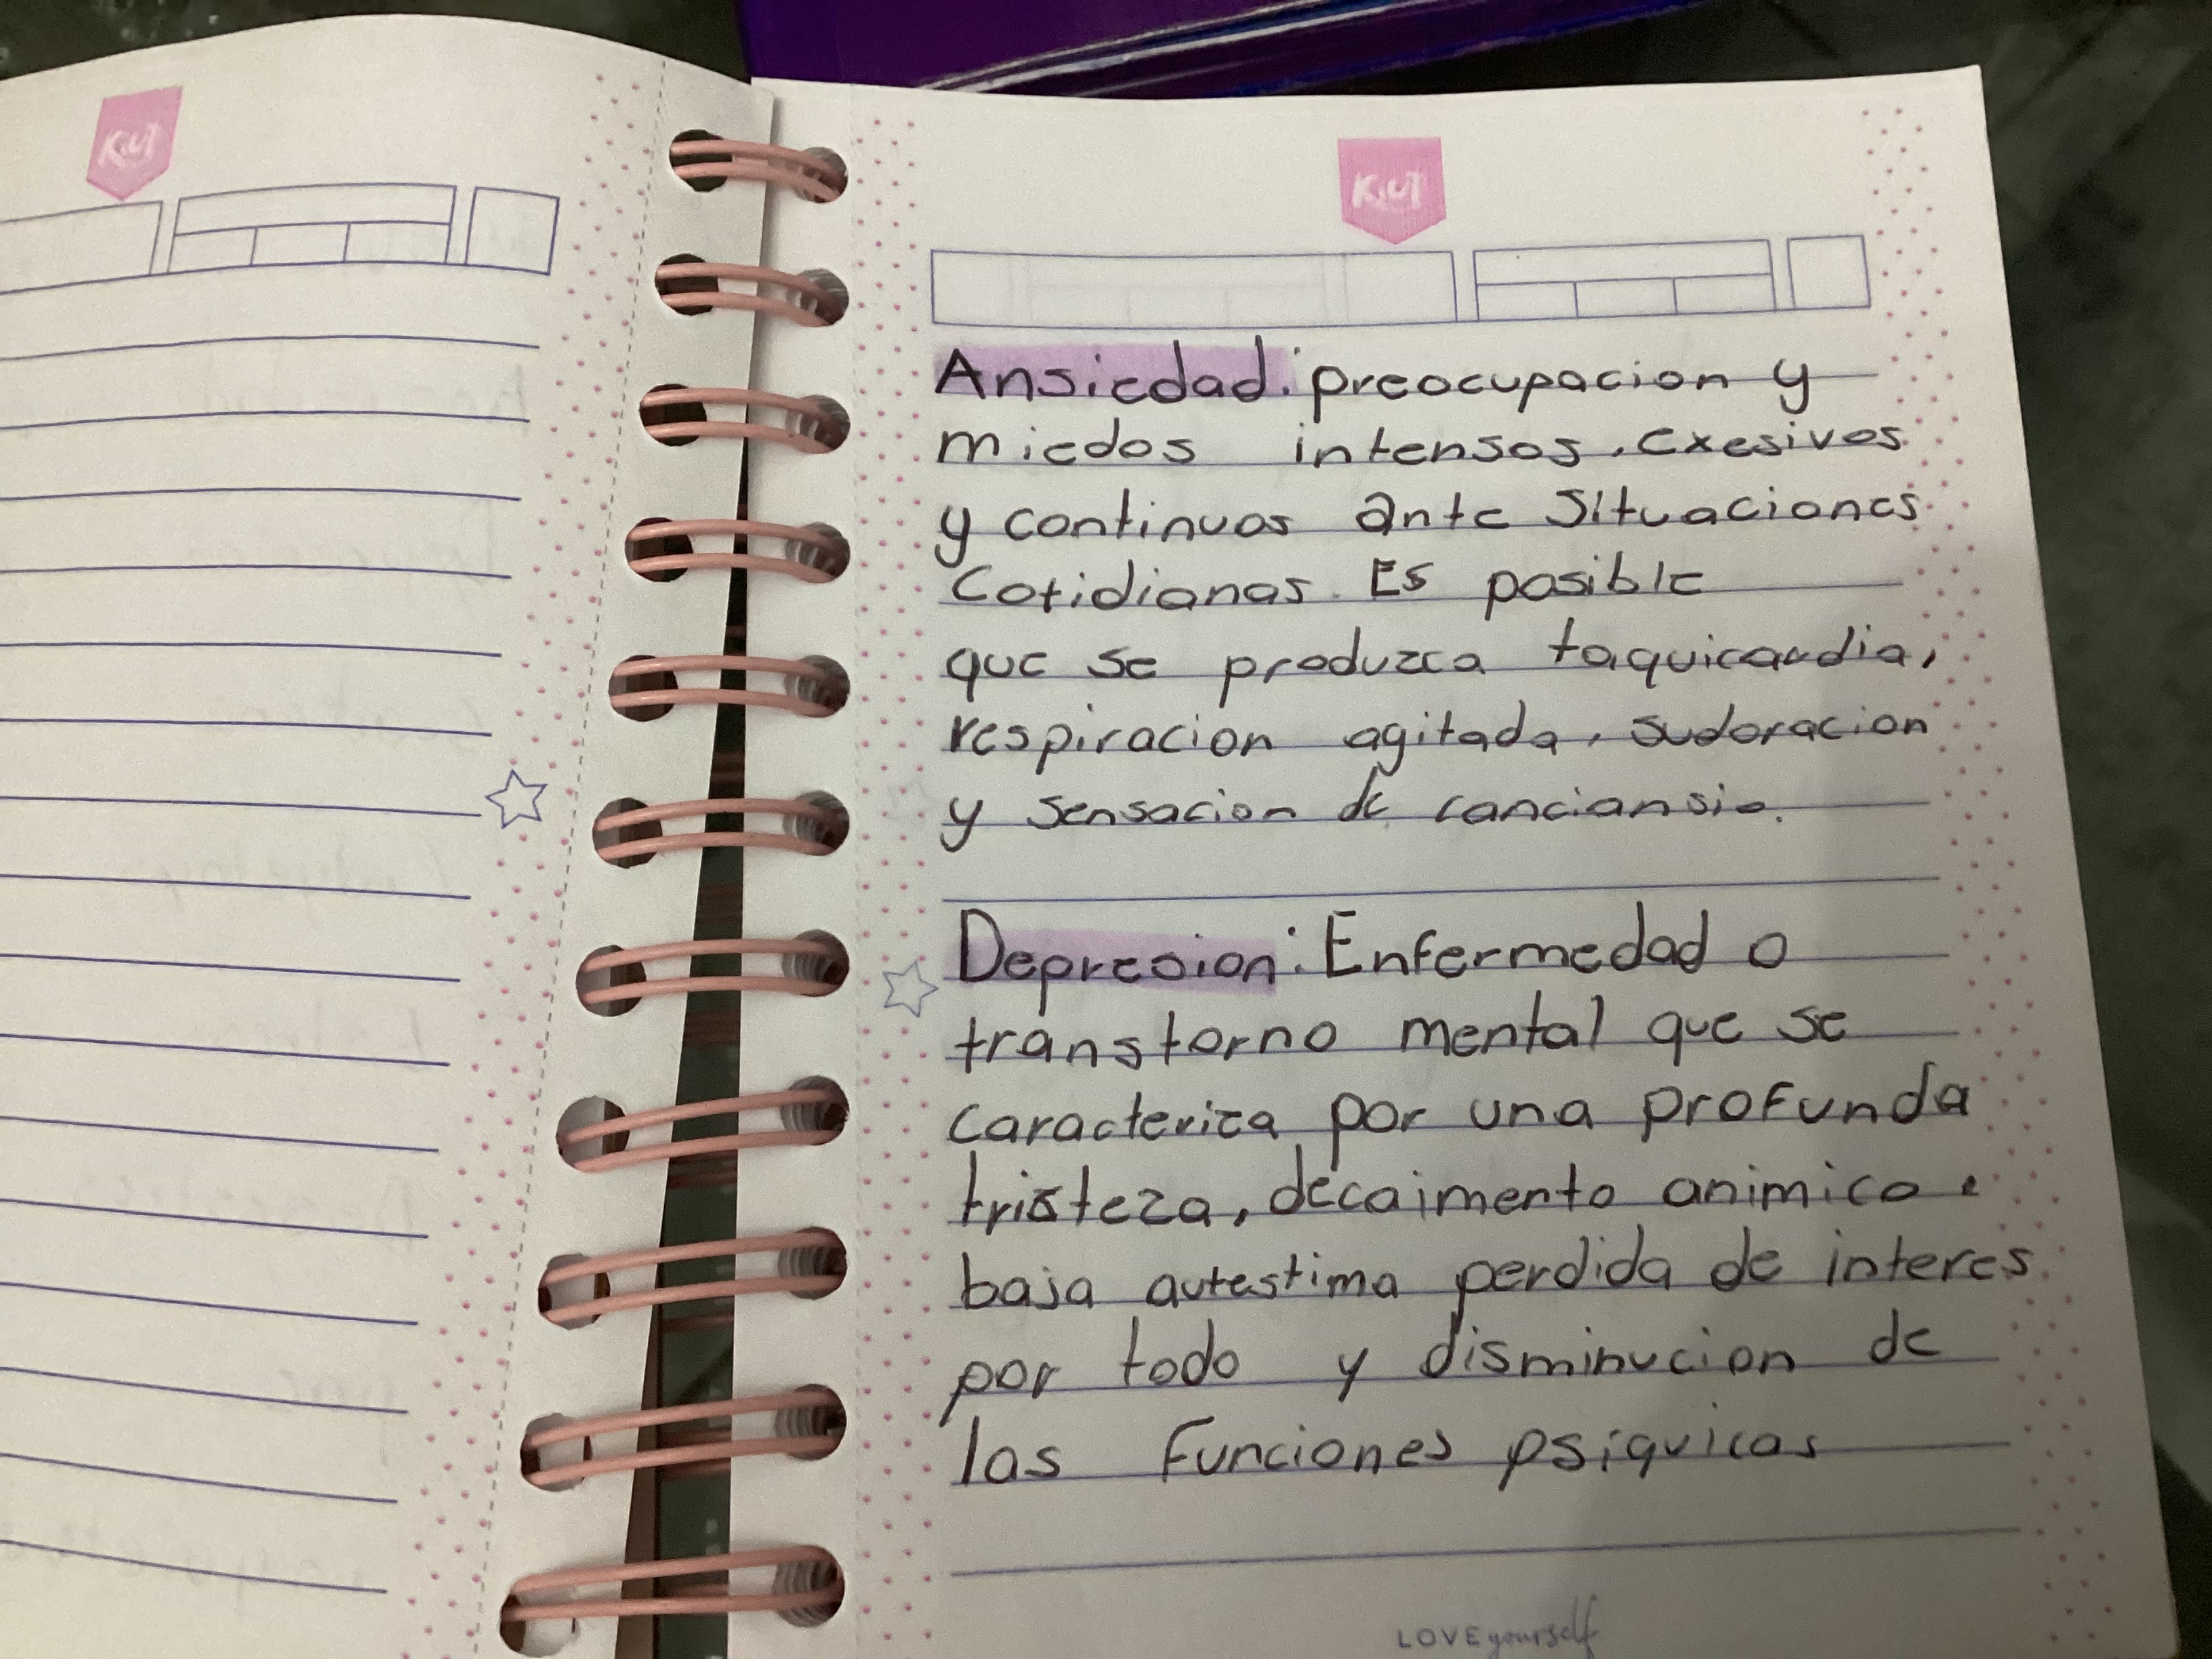 KIUT
KIUT
Ansiedad: preocupacion y
miedos intensos, exesivos
y continuos ante Situaciones
Cotidianas. Es posible
que se produzca taquicardia,
respiracion agitada, sudoracion
y sensacion de canciansio.
Depresion: Enfermedad o
transtorno mental que se
caracteriza por una profunda
tristeza, decaimento animico
baja autestima perdida de interes
por todo y disminucion de
las funciones psiquicas
LOVE yourself